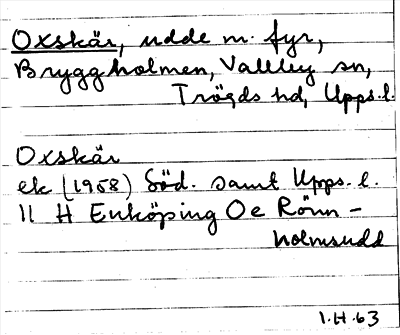 Oxskär, udde m. fyr,
Bryggholmen, Vallby sn,
Trögds hd, Upps. l.
Oxskär
ek (1958) Söd. samt Upps. l.
11 H Enköping Oe Rönn-
holmsudd
1.H.63